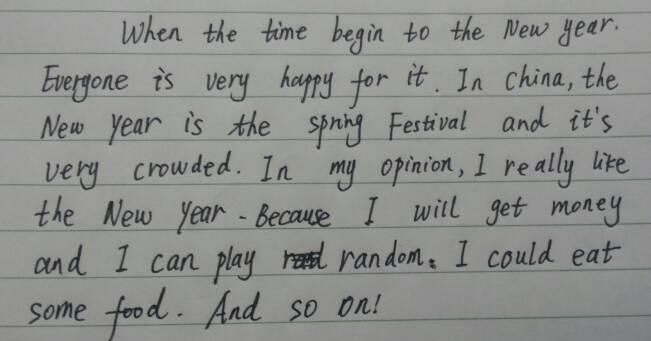 When the time begin to the New year.
Everyone is very happy for it. In China, the
New year is the spring Festival and it's
very crowded. In my opinion, I really like
the New year - Because I will get money
and I can play random. I could eat
some food. And so on!